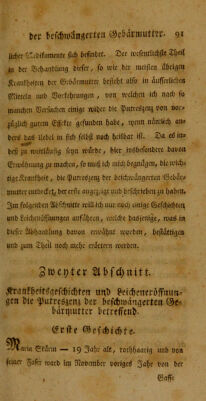 der beschwängerten Gebärmutter. 91
licher Medikamente sich befindet. Der wesentlichste Theil
in der Behandlung dieser, so wie der meisten übrigen
Krankheiten der Gebärmutter besteht also in äusserlichen
Mitteln und Vorkehrungen, von welchen ich nach so
manchen Versuchen einige wider die Putreszenz von vor-
züglich gutem Effekte gefunden habe, wenn nämlich an-
ders das Uebel in sich selbst noch heilbar ist. Da es in-
deß zu weitläufig seyn würde, hier insbesondere davon
Erwähnung zu machen, so muß ich mich begnügen, die wich-
tige Krankheit, die Putreszenz der beschwängerten Gebär-
mutter entdeckt, der erste angezeigt und beschrieben zu haben.
Im folgenden Abschnitte will ich nur noch einige Geschichten
und Leicheneröffnungen anführen, welche dasjenige, was in
dieser Abhandlung davon erwähnt worden, bestättigen
und zum Theil noch mehr erörtern werden.
Zweyter Abschnitt.
Krankheitsgeschichten und Leicheneröffnun-
gen die Putreszenz der beschwängerten Ge-
bärmutter betreffend.
Erste Geschichte.
Maria Stürm — 19 Jahr alt, rothhaarig und von
feiner Faser ward im November voriges Jahr von der
Gasse